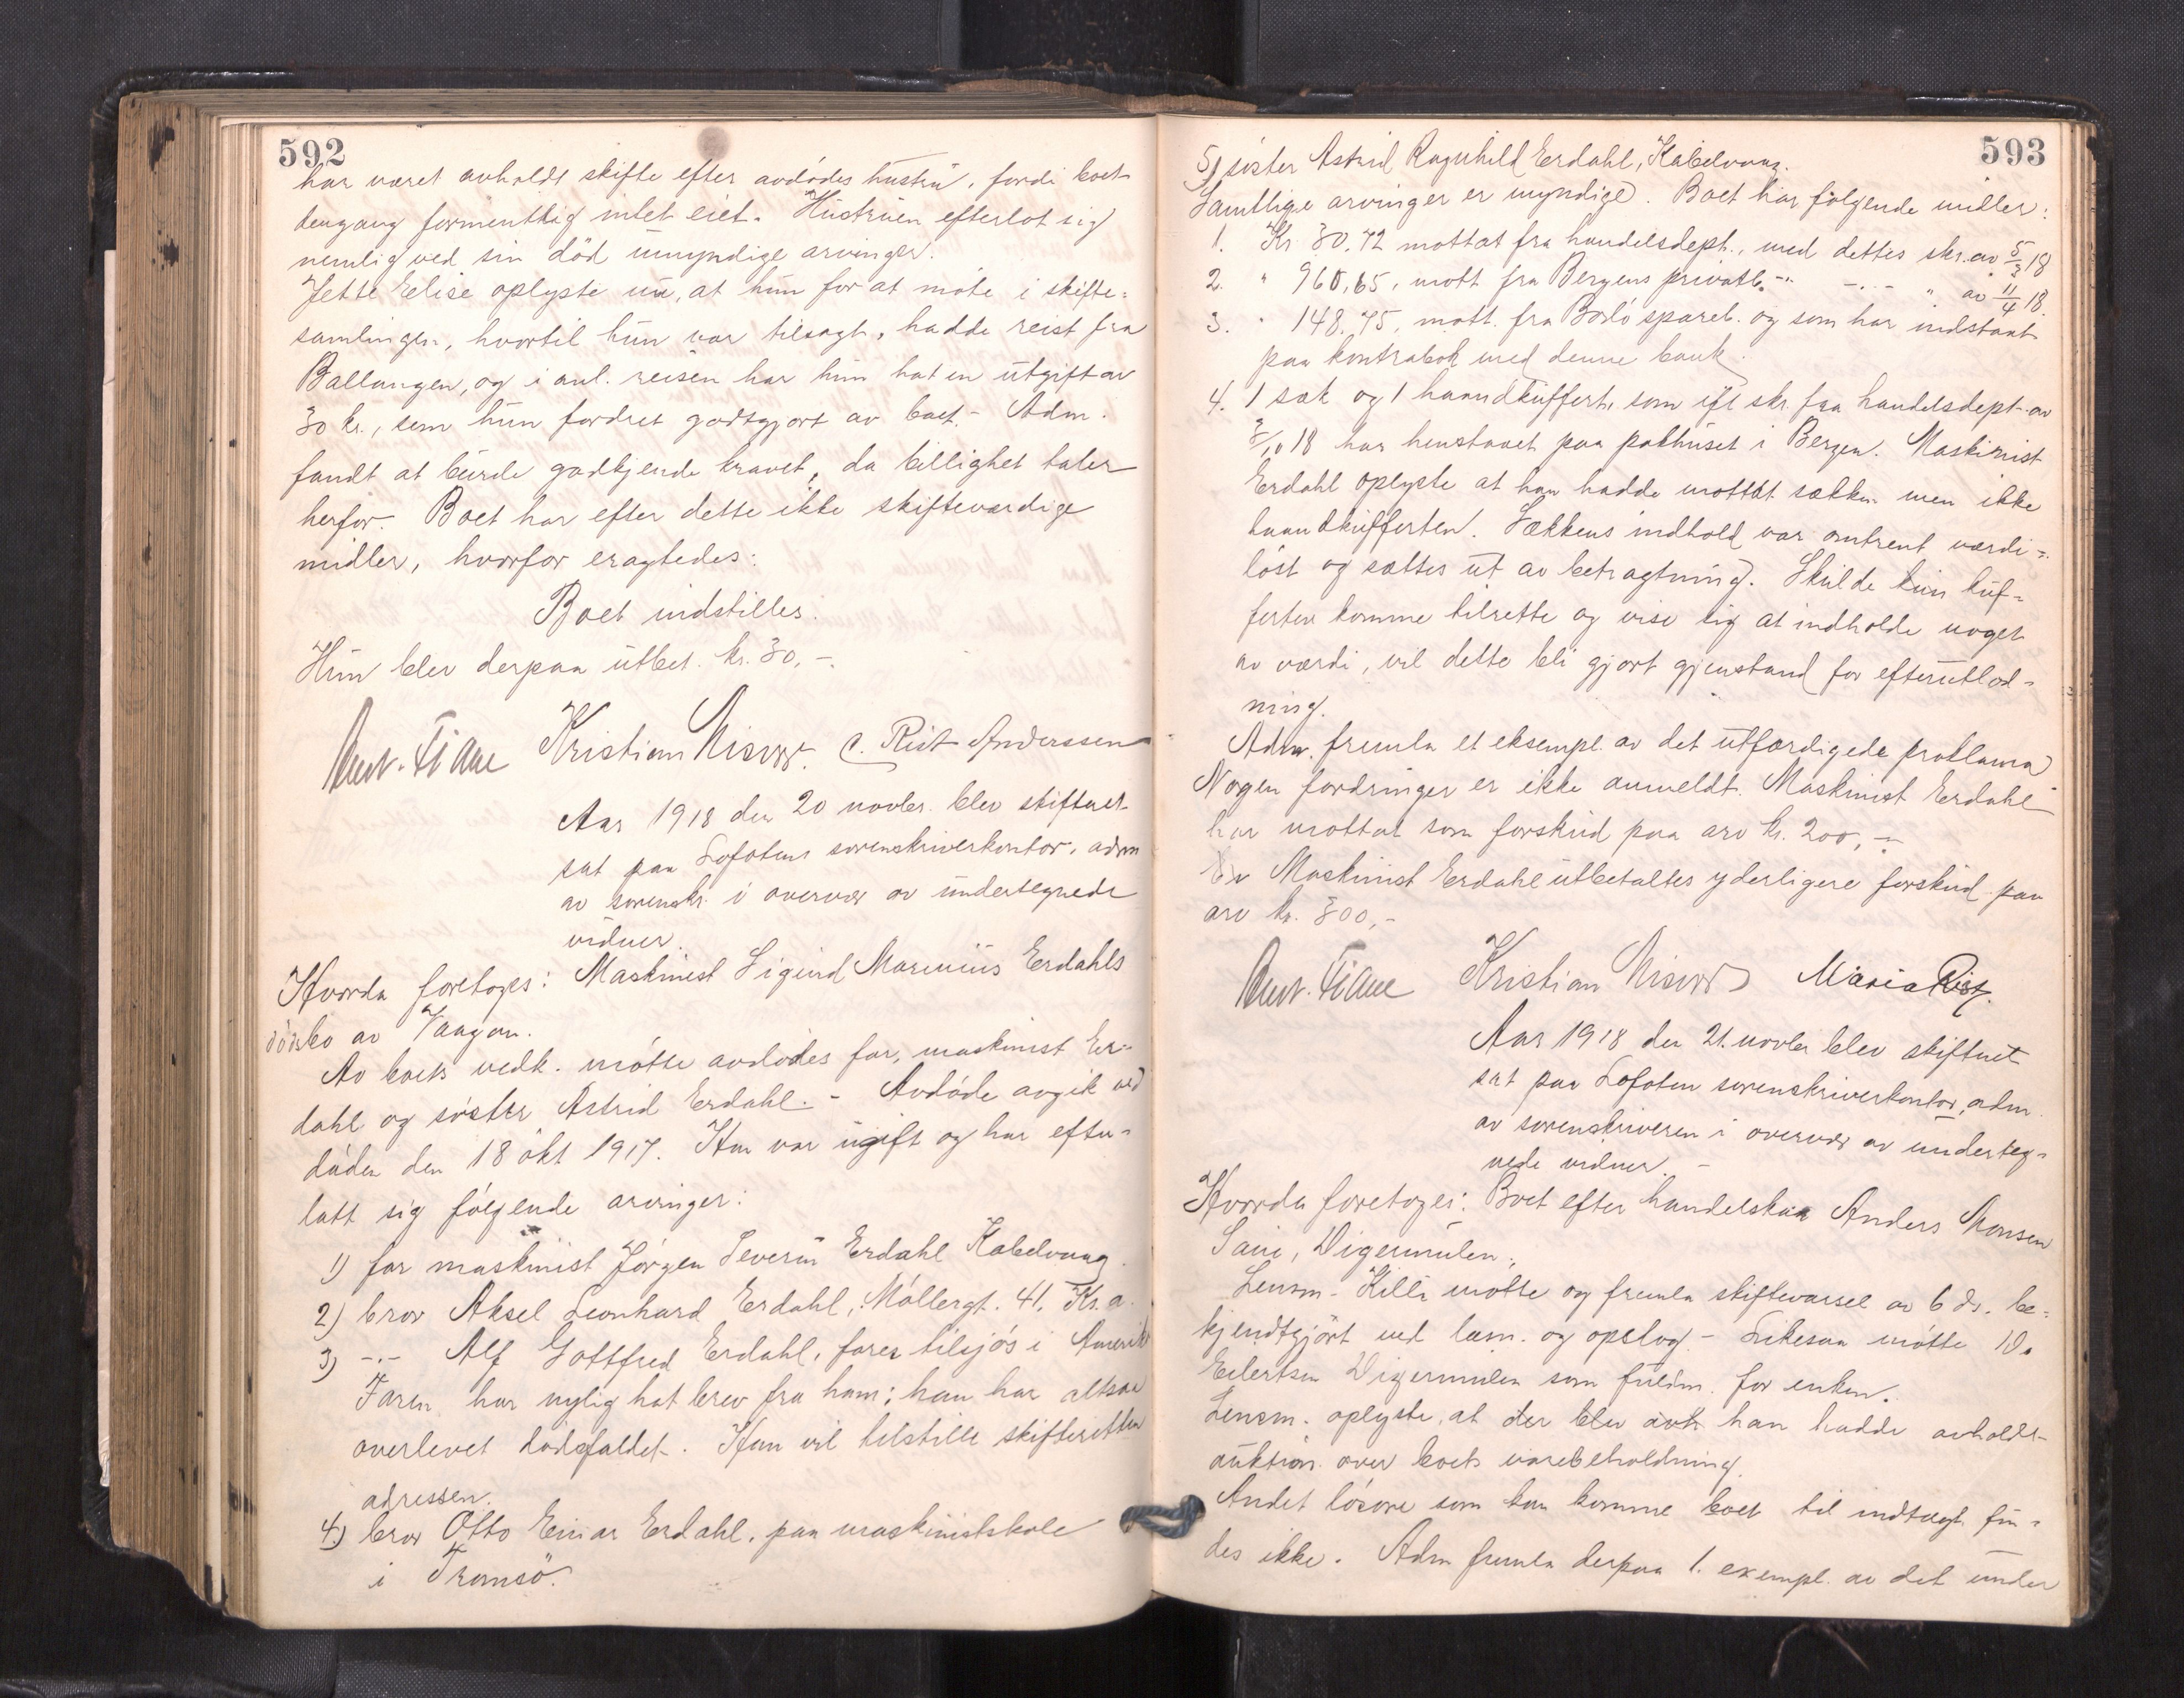 592
har været avholdt skifte efter avdødes hustru, fordi boet
dengang formentlig intet eiet. Hustruen efterlot sig
nemlig ved sin død umyndige arvinger.
Jette Elise oplyste nu, at hun for at møte i skifte-
samlingen, hvortil hun var tilsagt, hadde reist fra
Ballangen, og i anl. reisen har hun hat en utgift av
30 kr., som hun fordret godtgjort av boet. - Adm.
fandt at burde godkjende kravet, da billighet taler
herfor. Boet har efter dette ikke skifteværdige
midler, hvorfor eragtedes:
Boet indstilles.
Hun blev derpaa utbet. kr. 30,-.
Kristian Nisvrr. C. Rist Anderssen
Aar 1918 den 20 novbr. blev skifteret
sat paa Lofotens sorenskriverkontor, adm
av sorenskr. i overvær av undertegnede
vidner.
Hvorda foretoges: Maskinist Sigurd Marinius Erdahls
dødsbo av Vaagan.
Av boets vedk. møtte avdødes far, maskinist Er-
dahl og søster Astrid Erdahl. - Avdøde avgik ved
døden den 18 okt 1917. Han var ugift og har efter-
latt sig følgende arvinger:
1) far maskinist Jørgen Severin Erdahl Kabelvaag.
2) bror Aksel Leonhard Erdahl, Møllergt. 41, Kr.a.
3) -.- Alf Gottfred Erdahl, fares tilsjøs i Amerik
Faren har nylig hat brev fra ham; han har altsaa
overlevet dødsfaldet. Han vil tilstille skifteretten
adressen.
4.) bror Otto Einar Erdahl, paa maskinistskole
i Tromsø.
593
5) søster Astrid Ragnhild Erdahl, Kabelvaag.
Samtlige arvinger er myndige. Boet har følgende midler:
1. Kr 30.72 mottat fra handelsdept., med dettes skr. av 5/3 18
2. " 960,65, mott fra Bergens privatb. -" -.- " av 11/4 18.
3. " 148.75, mott. fra Bodø spareb. og som har indstaat
paa kontrabok med denne bank.
4. 1 sæk og 1 haandkuffert, som ifl skr. fra handelsdept. av
8/10 18 har henstaaet paa pakhuset i Bergen. Maskinist
Erdahl oplyste at han hadde mottat sækken men ikke
haandkufferten. Sækkens indhold var omtrent værdi-
løst og sættes ut av betragtning. Skulde kun kuf-
ferten komme tilrette og vise sig at indholde noget
av værdi, vil dette bli gjort gjenstand for efterutlod-
ning.
Adm. fremla et eksempl. av det utfærdigede proklama
Nogen fordringer er ikke anmeldt. Maskinist Erdahl
har mottat som forskud paa arv kr. 200,-
Maskinist Erdahl utbetaltes yderligere forskud paa
arv kr. 300,-
Kristian Nisvrr Maria Rist.
Aar 1918 den 21. novbr blev skifteret
sat paa Lofoten sorenskriverkontor, adm.
av sorenskriveren i overvær av underteg-
nede vidner. -
Hvorda foretoges: Boet efter handelskar Anders Monsen
Digermulen.
Lensm. Killi møtte og fremla skiftevarsel av 6 ds. be-
kjendtgjört ved læsn. og opslag - Likesaa møtte D.
Eilertsen Digermulen som fuldm. for enken.
Lensm. oplyste, at der blev avh han hadde avholdt
auktion over boets varebeholdning.
Andet løsøre som kan komme boet til indtægt fin-
des ikke. Adm fremla derpaa 1. exempl. av det under